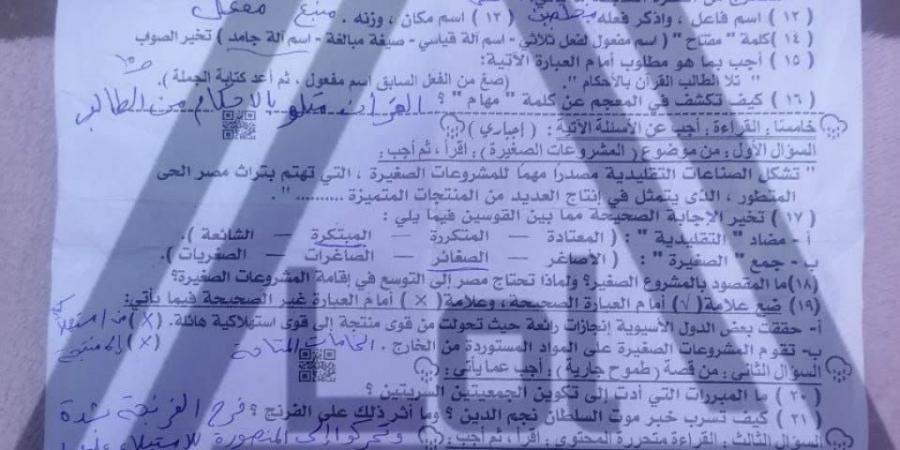 (١٢) اسم فاعل ، واذكر فعله مخلصين (١٣) اسم مكان ، وزنه . منبع مفعل
(١٤) كلمة " مفتاح " ( اسم مفعول لفعل ثلاثي - اسم آلة قياسي - صيغة مبالغة - اسم آلة جامد ) تخير الصواب
(١٥) أجب بما هو مطلوب أمام العبارة الآتية:
" تلا الطالب القرآن بالأحكام ". (صغ من الفعل السابق اسم مفعول ، ثم أعد كتابة الجملة).
(١٦) كيف تكشف في المعجم عن كلمة " مهام " ؟ القرآن متلو بالأحكام من الطالب
خامسًا: القراءة: أجب عن الأسئلة الآتية: ( إجباري )
السؤال الأول: من موضوع ( المشروعات الصغيرة ) : اقرأ ، ثم أجب:
" تشكل الصناعات التقليدية مصدرًا مهمًا للمشروعات الصغيرة ، التي تهتم بتراث مصر الحى
المتطور ، الذى يتمثل في إنتاج العديد من المنتجات المتميزة .......... " .
(١٧) تخير الإجابة الصحيحة مما بين القوسين فيما يلي :
أ - مضاد " التقليدية " : ( المعتادة – المتكررة – المبتكرة – الشائعة ).
ب- جمع " الصغيرة " : ( الأصاغر – الصغائر – الصاغرات – الصغريات ).
(١٨) ما المقصود بالمشروع الصغير؟ ولماذا تحتاج مصر إلى التوسع في إقامة المشروعات الصغيرة؟
(١٩) ضع علامة (√) أمام العبارة الصحيحة ، وعلامة ( X ) أمام العبارة غير الصحيحة فيما يأتي:
أ- حققت بعض الدول الأسيوية إنجازات رائعة حيث تحولت من قوى منتجة إلى قوى استهلاكية هائلة. ( X ) من
ب- تقوم المشروعات الصغيرة على المواد المستوردة من الخارج . الخامات المتاحة ( X ) إلى منتجة
السؤال الثاني: من قصة ( طموح جارية ) : أجب عما يأتي:
(٢٠) ما المبررات التي أدت إلى تكوين الجمعيتين السريتين ؟
(٢١) كيف تسرب خبر موت السلطان نجم الدين ؟ وما أثر ذلك على الفرنج ؟ فرح الفرنجة بشدة
السؤال الثالث: القراءة متحررة المحتوى : اقرأ ، ثم أجب : وتحركوا إلى المنصورة للاستيلاء عليها